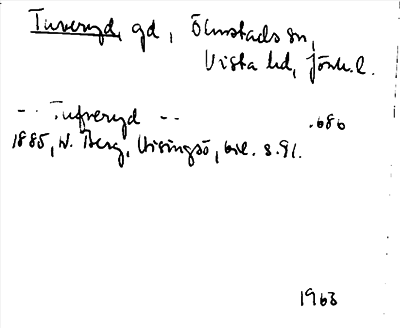 Tuveryd, gd, Ölmstads sn,
Vista hd, Jönk. l.
- - Tufveryd - - 1686
1885, W. Berg, Visingsö, bil. s. 91.
1963